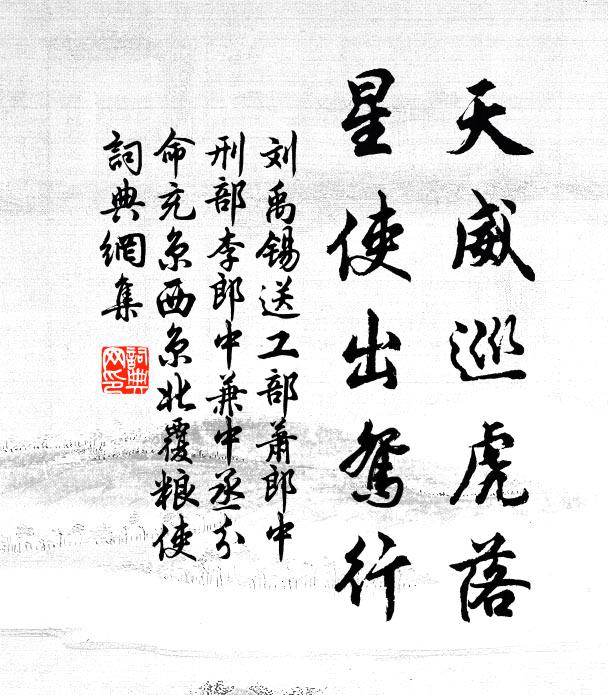 天威巡虎落
星使出鸳行
刘禹锡送工部萧郎中
刑部李郎中兼中丞分
命充京西京北覆粮使
詞典網集
詞典网印